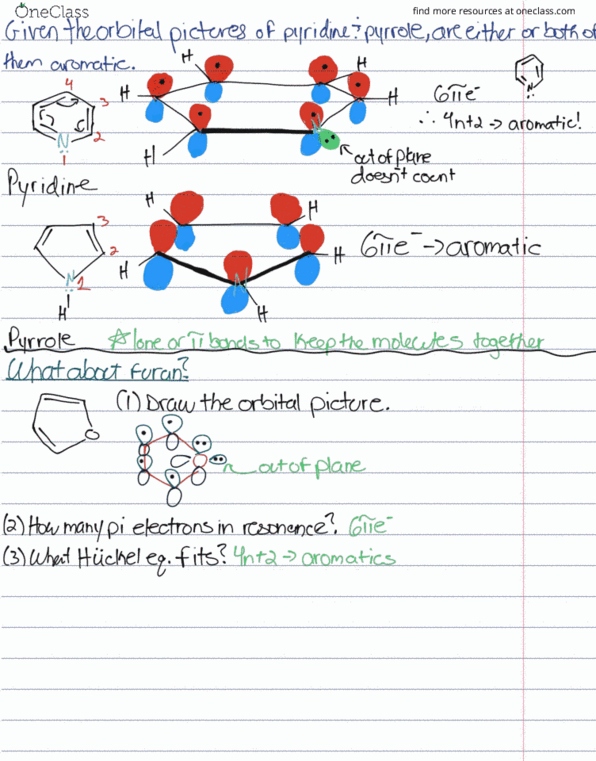 OneClass
find more resources at oneclass.com
Given the orbital pictures of pyridine & pyrrole, are either or both of
them aromatic.
4
3
2
N
1
Pyridine
H
H
H
H
H
N
6πe⁻
∴ 4n+2 → aromatic!
N
out of plane
doesn't count
3
2
N
1
H
Pyrrole
H
H
H
H
N
H
6πe⁻ → aromatic
☆ lone or π bonds to keep the molecules together
What about Furan?
O
(1) Draw the orbital picture.
out of plane
(2) How many pi electrons in resonence? 6πe⁻
(3) What Hückel eq. fits? 4n+2 → aromatics